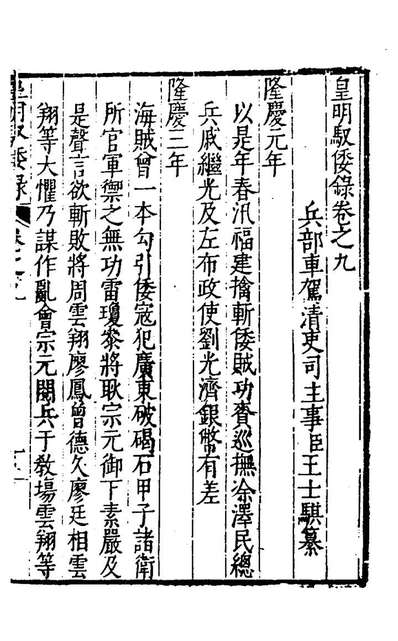 皇明馭倭錄卷之九
兵部車駕清吏司主事臣王士騏纂
隆慶元年
以是年春汛福建擒斬倭賊功賚巡撫涂澤民總
兵戚繼光及左布政使劉光濟銀幣有差
隆慶三年
海賊曾一本勾引倭寇犯廣東破碣石甲子諸衛
所官軍禦之無功雷瓊參將耿宗元御下素嚴及
是聲言欲斬敗將周雲翔廖鳳曾德久廖廷相雲
翔等大懼乃謀作亂會宗元閱兵于教場雲翔等
皇明馭倭錄
卷之九